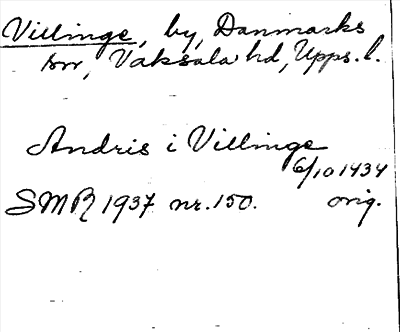 Villinge, by, Danmarks
sn, Vaksala hd, Upps. l.
Andris i Villinge
6/10 1434
SMR 1937 nr. 150. orig.